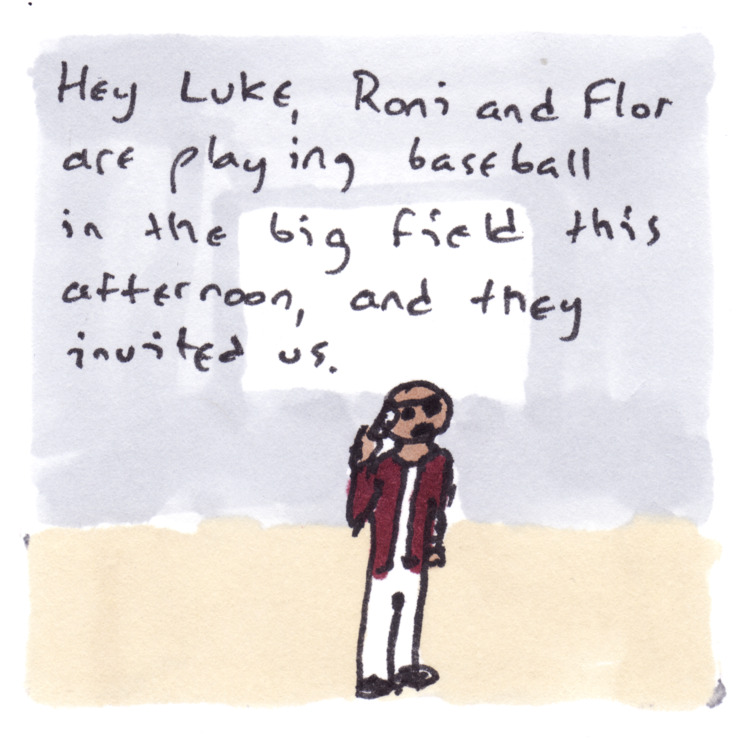 Hey Luke, Roni and Flor
are playing baseball
in the big field this
afternoon, and they
invited us.